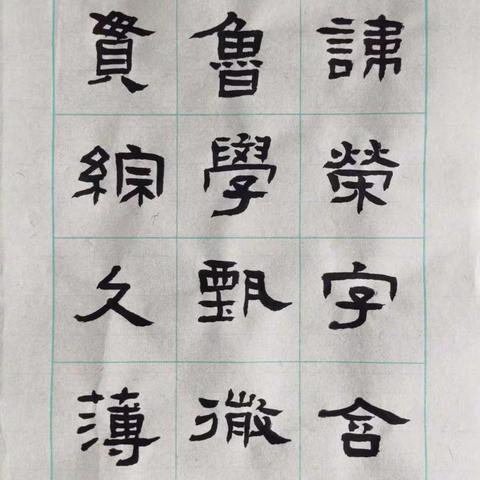 諱榮字含
魯學甄微
貫綜久薄